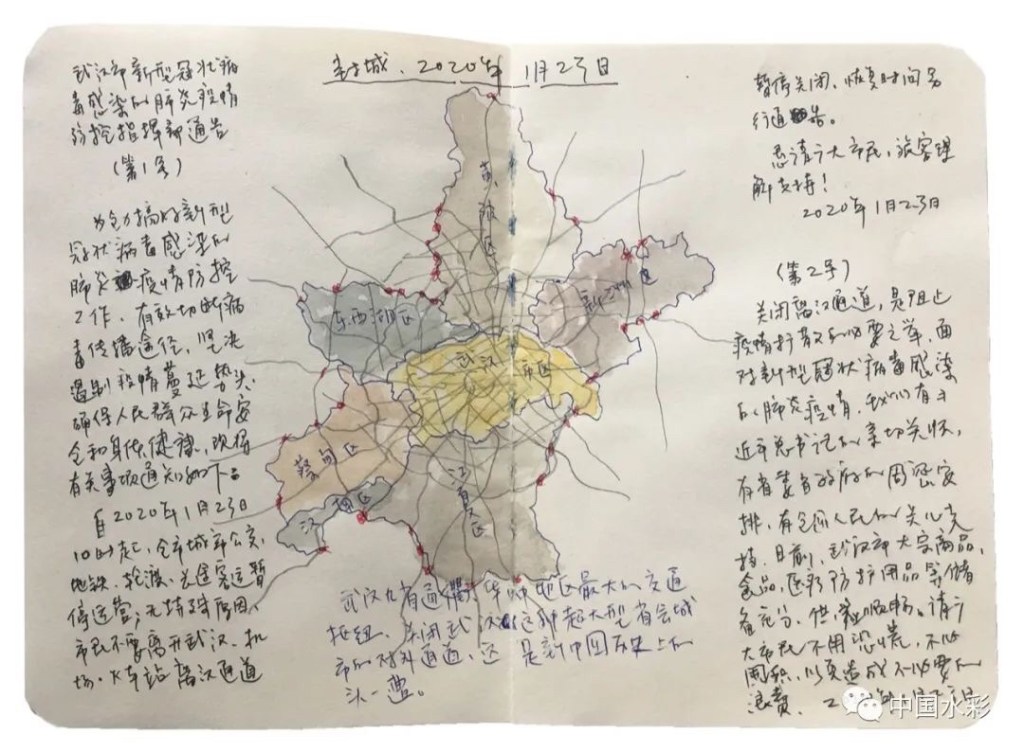 封城、2020年1月23日
武汉市新型冠状病
毒感染的肺炎疫情
防控指挥部通告
(第1号)
为全力搞好新型
冠状病毒感染的
肺炎疫情防控
工作,有效切断病
毒传播途径,坚决
遏制疫情蔓延势头,
确保人民群众生命安
全和身体健康,现将
有关事项通知如下:
自2020年1月23日
10时起,全市城市公交、
地铁、轮渡、长途客运暂
停运营;无特殊原因,
市民不要离开武汉,机
场、火车站离汉通道
黄陂区
新洲区
东西湖区
武汉市区
蔡甸区
汉南区
江夏区
武汉九省通衢,华中地区最大的交通
枢纽,关闭武汉这种超大型省会城
市的对外通道,这是新中国历史上的
头一遭。
暂停关闭,恢复时间另
行通告。
恳请广大市民,旅客理
解支持!
2020年1月23日
(第2号)
关闭离汉通道,是阻止
疫情扩散的必要之举,面
对新型冠状病毒感染
的肺炎疫情,我们有习
近平总书记的亲切关怀,
有省委省政府的周密安
排,有全国人民的关心支
持。目前,武汉市大宗商品、
食品、医疗防护用品等储
备充分,供应顺畅。请广
大市民不用恐慌,不必
囤积,以免造成不必要的
浪费。
中国水彩